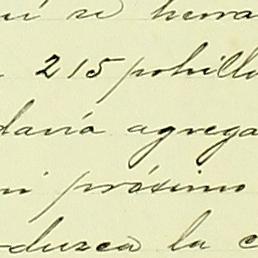 uí se herra
215 potrillo
davía agrega
mi próximo
oduzca la c